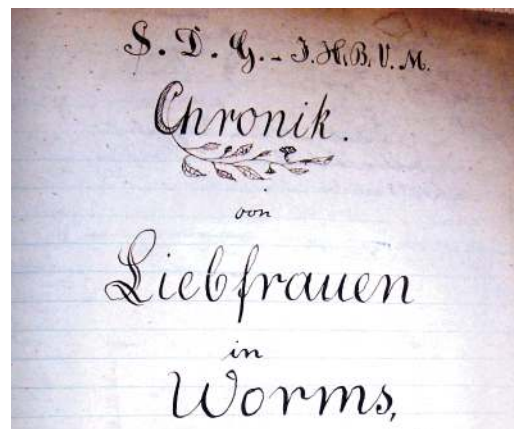 S. D. G. - J. H. B. V. M.
Chronik.
von
Liebfrauen
in
Worms,